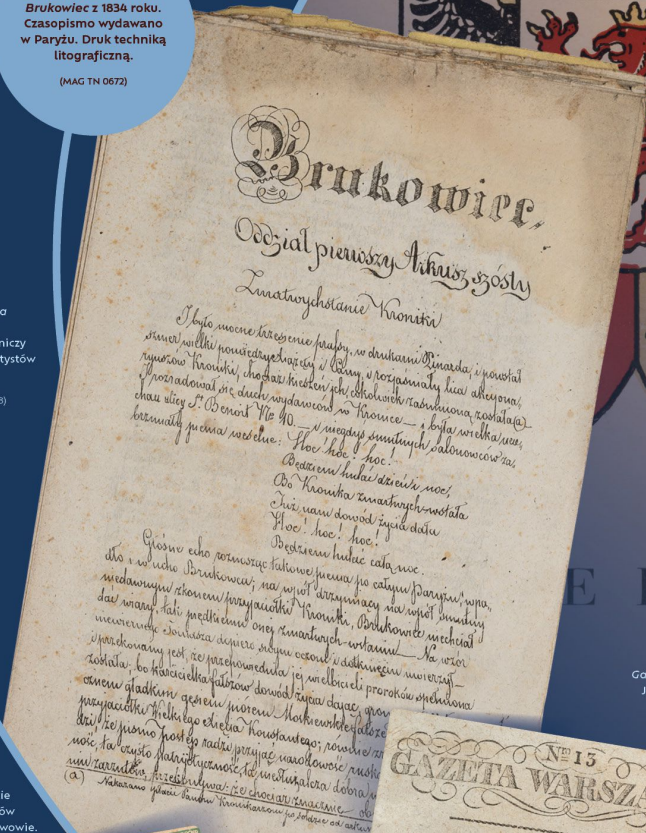 Brukowiec z 1834 roku.
Czasopismo wydawano
w Paryżu. Druk techniką
litograficzną.
(MAG TN 0672)
Brukowiec.
Oddział pierwszy Arkusz szósty
Zmartwychstanie Kroniki
I było mocne trzęsienie prassy, w drukarni Pinarda, i powstał
szmer wielki pomiędzy Książęty i Pany, i rozjaśniały lica akcyona,
ryuszów Kroniki, chociaż kieszeń ich cokolwiek zaćmioną została (a)
I rozradował się duch wydawców w Kronice — i była wielka ucie,
cha w ulicy St Benoit No 10. — i niegdyś smutnych salonowców za,
brzmiały pienia wesołe: Hoc! hoc! hoc!
Będziem hulać dzień i noc,
Bo Kronika zmartwych-wstała
Już nam dowód życia dała
Hoc! hoc! hoc!
Będziem hulać całą noc.
Głośne echo roznosząc takowe pienia po całym Paryżu, wpa,
dło i w ucho Brukowca; na wpół drzymiący na wpół smutny
niedawnym zkonem przyjaciółki Kroniki, Brukowiec niechciał
dać wiary, tak prędkiemu onej zmartwych-wstaniu — Na wzór
niewiernego Tomasza dopiero swym oczom i dotknięciu uwierzył —
i przekonany jest, że przepowiednia jej wielbicieli proroków spełniona
została, bo właścicielka fałszów dowód życia dając,
oznem gładkim gęsiem piórem Moskiewskie fałsze
przyjaciółki Wielkiego Xięcia Konstantego; równie
dzi, że pismo Postęp radzi przyjąć narodowość rusk
ność, ta czysto patryotyczność, ta nieubłagalna dobra
mu zarzutów,
(a) Nakazano płacić Panom Kronikarzom po
Nro 13
GAZETA WARSZA
E
a
niczy
tystów
3)
Ga
J
ie
ów
wowie.